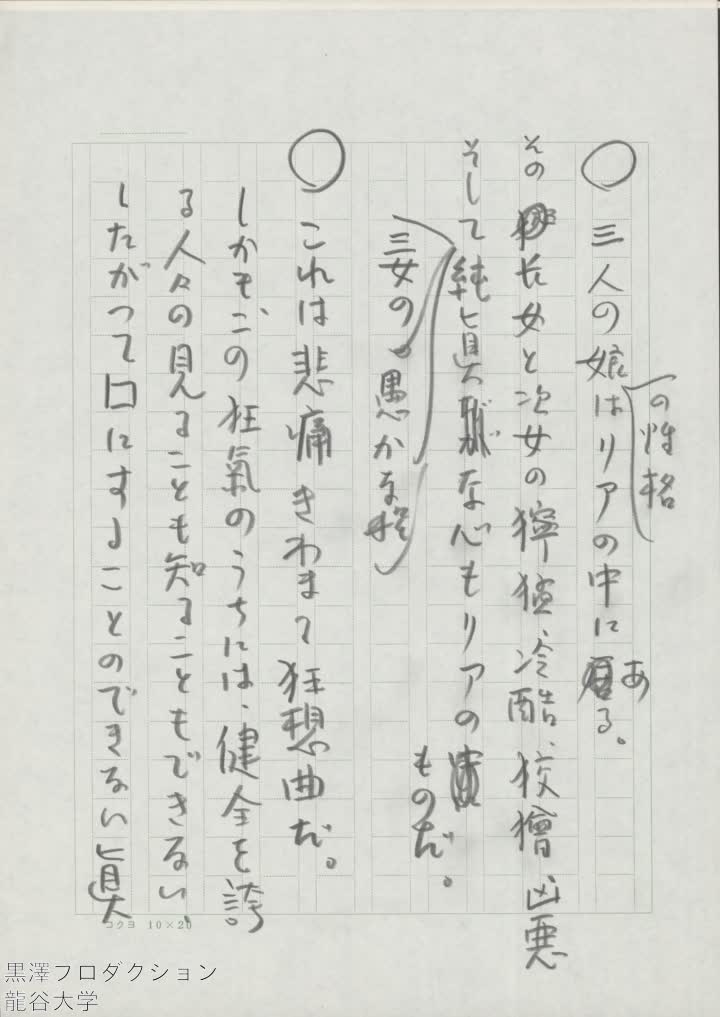 ○ 三人の娘はリアの中にある。
の性格
その長女と次女の獰猛、冷酷、狡獪凶悪
そして純真な心もリアの
ものだ。
三女の。愚かな程
○ これは悲痛きわまる狂想曲だ。
しかもこの狂氣のうちには、健全を誇
る人々の見ることも知ることもできない、
したがつて口にすることのできない真
コクヨ 10×20
黒澤プロダクション
龍谷大学